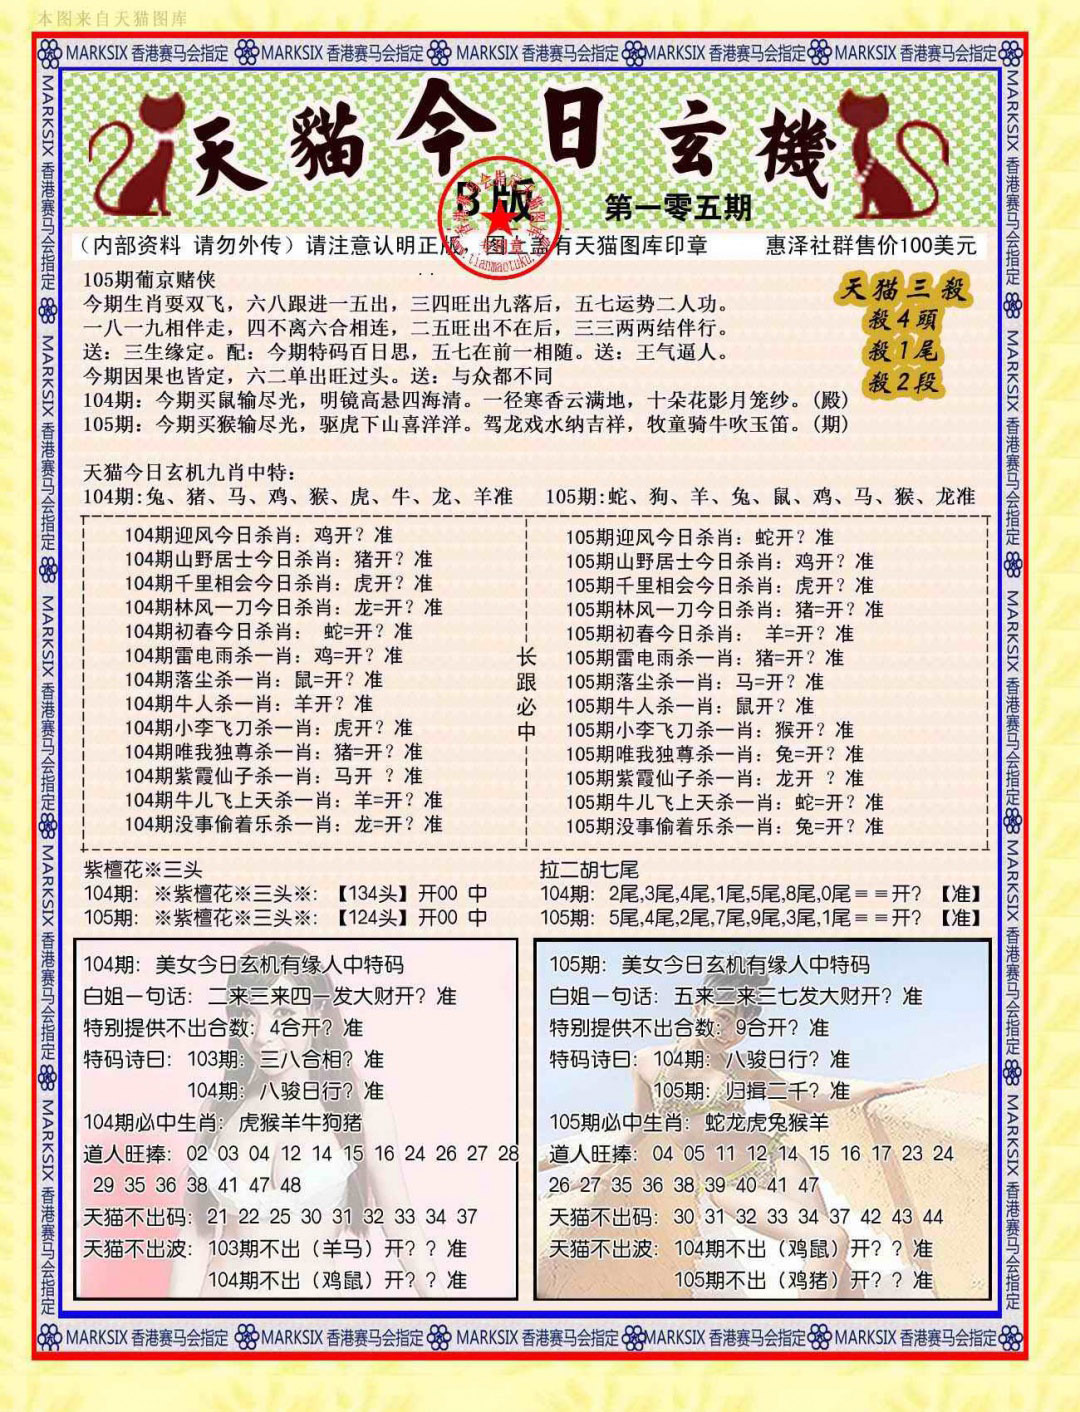 本图来自天猫图库
MARKSIX 香港赛马会指定 MARKSIX 香港赛马会指定 MARKSIX 香港赛马会指定 MARKSIX 香港赛马会指定 MARKSIX 香港赛马会指定
MARKSIX 香港赛马会指定 MARKSIX 香港赛马会指定 MARKSIX 香港赛马会指定 MARKSIX 香港赛马会指定 MARKSIX 香港赛马会指定
MARKSIX 香港赛马会指定 MARKSIX 香港赛马会指定 MARKSIX 香港赛马会指定 MARKSIX 香港赛马会指定 MARKSIX 香港赛马会指定
天貓今日玄機
B版
第一零五期
（内部资料 请勿外传）请注意认明正版，图上盖有天猫图库印章 惠泽社群售价100美元
105期葡京赌侠
今期生肖耍双飞，六八跟进一五出，三四旺出九落后，五七运势二人功。
一八一九相伴走，四不离六合相连，二五旺出不在后，三三两两结伴行。
送：三生缘定。配：今期特码百日思，五七在前一相随。送：王气逼人。
今期因果也皆定，六二单出旺过头。送：与众都不同
104期：今期买鼠输尽光，明镜高悬四海清。一径寒香云满地，十朵花影月笼纱。(殿)
105期：今期买猴输尽光，驱虎下山喜洋洋。驾龙戏水纳吉祥，牧童骑牛吹玉笛。(期)
天猫三殺
殺4頭
殺1尾
殺2段
天猫今日玄机九肖中特：
104期:兔、猪、马、鸡、猴、虎、牛、龙、羊准 105期:蛇、狗、羊、兔、鼠、鸡、马、猴、龙准
104期迎风今日杀肖：鸡开？准
104期山野居士今日杀肖：猪开？准
104期千里相会今日杀肖：虎开？准
104期林风一刀今日杀肖：龙=开？准
104期初春今日杀肖： 蛇=开？准
104期雷电雨杀一肖：鸡=开？准
104期落尘杀一肖：鼠=开？准
104期牛人杀一肖：羊开？准
104期小李飞刀杀一肖：虎开？准
104期唯我独尊杀一肖：猪=开？准
104期紫霞仙子杀一肖：马开 ？准
104期牛儿飞上天杀一肖：羊=开？准
104期没事偷着乐杀一肖：龙=开？准
长跟必中
105期迎风今日杀肖：蛇开？准
105期山野居士今日杀肖：鸡开？准
105期千里相会今日杀肖：虎开？准
105期林风一刀今日杀肖：猪=开？准
105期初春今日杀肖： 羊=开？准
105期雷电雨杀一肖：猪=开？准
105期落尘杀一肖：马=开？准
105期牛人杀一肖：鼠开？准
105期小李飞刀杀一肖：猴开？准
105期唯我独尊杀一肖：兔=开？准
105期紫霞仙子杀一肖：龙开 ？准
105期牛儿飞上天杀一肖：蛇=开？准
105期没事偷着乐杀一肖：兔=开？准
紫檀花※三头
104期：※紫檀花※三头※：【134头】开00 中
105期：※紫檀花※三头※：【124头】开00 中
拉二胡七尾
104期：2尾,3尾,4尾,1尾,5尾,8尾,0尾＝＝开？【准】
105期：5尾,4尾,2尾,7尾,9尾,3尾,1尾＝＝开？【准】
104期：美女今日玄机有缘人中特码
白姐一句话：二来三来四一发大财开？准
特别提供不出合数：4合开？准
特码诗曰：103期：三八合相？准
104期：八骏日行？准
104期必中生肖：虎猴羊牛狗猪
道人旺捧：02 03 04 12 14 15 16 24 26 27 28
29 35 36 38 41 47 48
天猫不出码：21 22 25 30 31 32 33 34 37
天猫不出波：103期不出（羊马）开？？准
104期不出（鸡鼠）开？？准
105期：美女今日玄机有缘人中特码
白姐一句话：五来二来三七发大财开？准
特别提供不出合数：9合开？准
特码诗曰：104期：八骏日行？准
105期：归揖二千？准
105期必中生肖：蛇龙虎兔猴羊
道人旺捧：04 05 11 12 14 15 16 17 23 24
26 27 35 36 38 39 40 41 47
天猫不出码：30 31 32 33 34 37 42 43 44
天猫不出波：104期不出（鸡鼠）开？？准
105期不出（鸡猪）开？？准
MARKSIX 香港赛马会指定 MARKSIX 香港赛马会指定 MARKSIX 香港赛马会指定 MARKSIX 香港赛马会指定 MARKSIX 香港赛马会指定